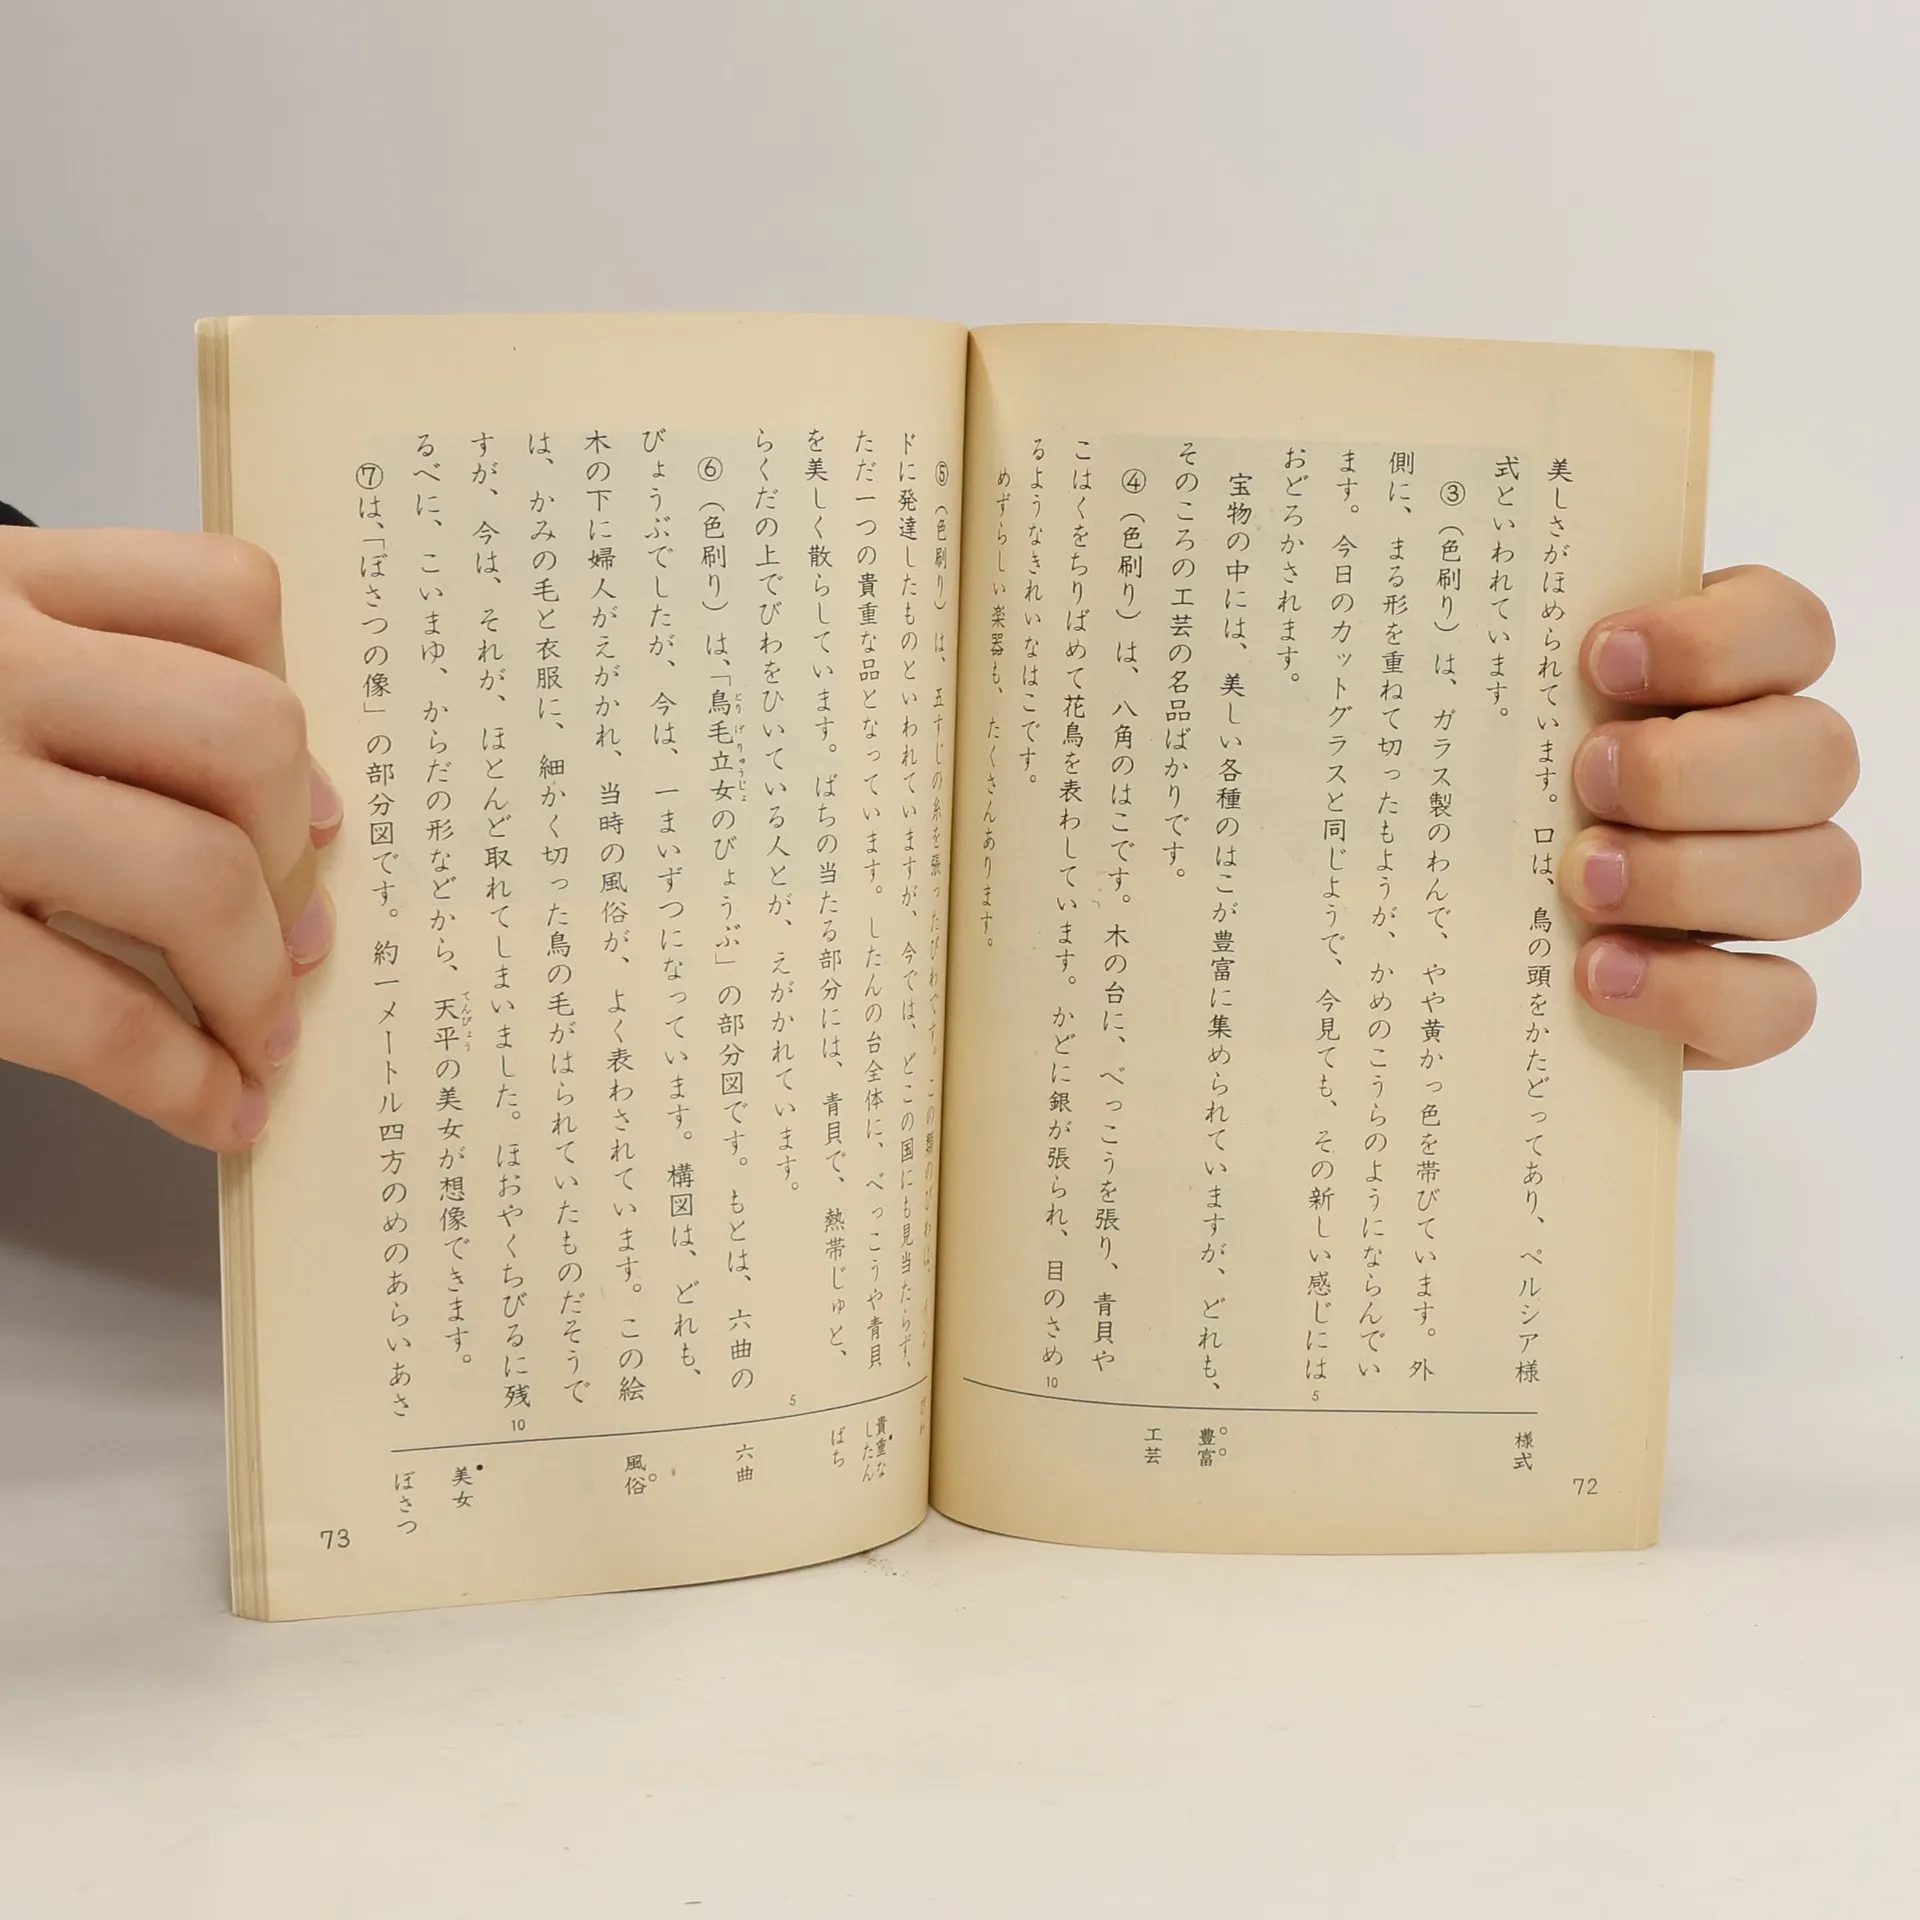 美しさがほめられています。口は、鳥の頭をかたどってあり、ペルシア様
式といわれています。
③（色刷り）は、ガラス製のわんで、やや黄かっ色を帯びています。外
側に、まる形を重ねて切ったもようが、かめのこうらのようにならんでい
ます。今日のカットグラスと同じようで、今見ても、その新しい感じには
おどろかされます。
宝物の中には、美しい各種のはこが豊富に集められていますが、どれも、
そのころの工芸の名品ばかりです。
④（色刷り）は、八角のはこです。木の台に、べっこうを張り、青貝や
こはくをちりばめて花鳥を表わしています。かどに銀が張られ、目のさめ
るようなきれいなはこです。
めずらしい楽器も、たくさんあります。
5
10
様式
豊富
工芸
72
⑤（色刷り）は、五すじの糸を張ったびわです。この類のびわは、
ドに発達したものといわれていますが、今では、どこの国にも見当たらず、
ただ一つの貴重な品となっています。したんの台全体に、べっこうや青貝
を美しく散らしています。ばちの当たる部分には、青貝で、熱帯じゅと、
らくだの上でびわをひいている人とが、えがかれています。
⑥（色刷り）は、「鳥毛立女のびょうぶ」の部分図です。もとは、六曲の
とりげりゅうじょ
びょうぶでしたが、今は、一まいずつになっています。構図は、どれも、
木の下に婦人がえがかれ、当時の風俗が、よく表わされています。この絵
は、かみの毛と衣服に、細かく切った鳥の毛がはられていたものだそうで
すが、今は、それが、ほとんど取れてしまいました。ほおやくちびるに残
るべに、こいまゆ、からだの形などから、天平の美女が想像できます。
てんぴょう
⑦は、「ぼさつの像」の部分図です。約一メートル四方のめのあらいあさ
5
10
貴重な
したん
ばち
六曲
風俗
美女
ぼさつ
73